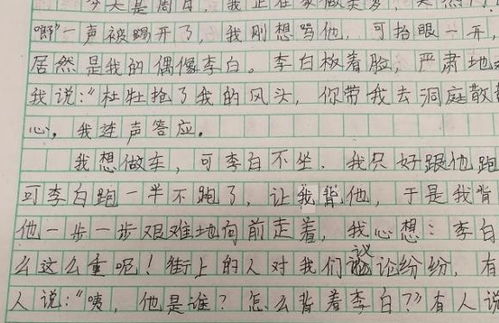 今天是周日，我正在家做美梦，突然门
唧"一声被踢开了，我刚想骂他，可抬眼一开，
居然是我的偶像李白。李白板着脸，严肃地对
我说："杜牡抢了我的风头，你带我去洞庭散散
心。我连声答应。
我想做车，可李白不坐．我只好跟他跑
可李白跑一半不跑了，让我背他，于是我背
他一步一步艰难地向前走着，我心想：李白
么这么重呢！街上的人对我们议论纷纷，有
人说："咦，他是谁？怎么背着李白？"有人说